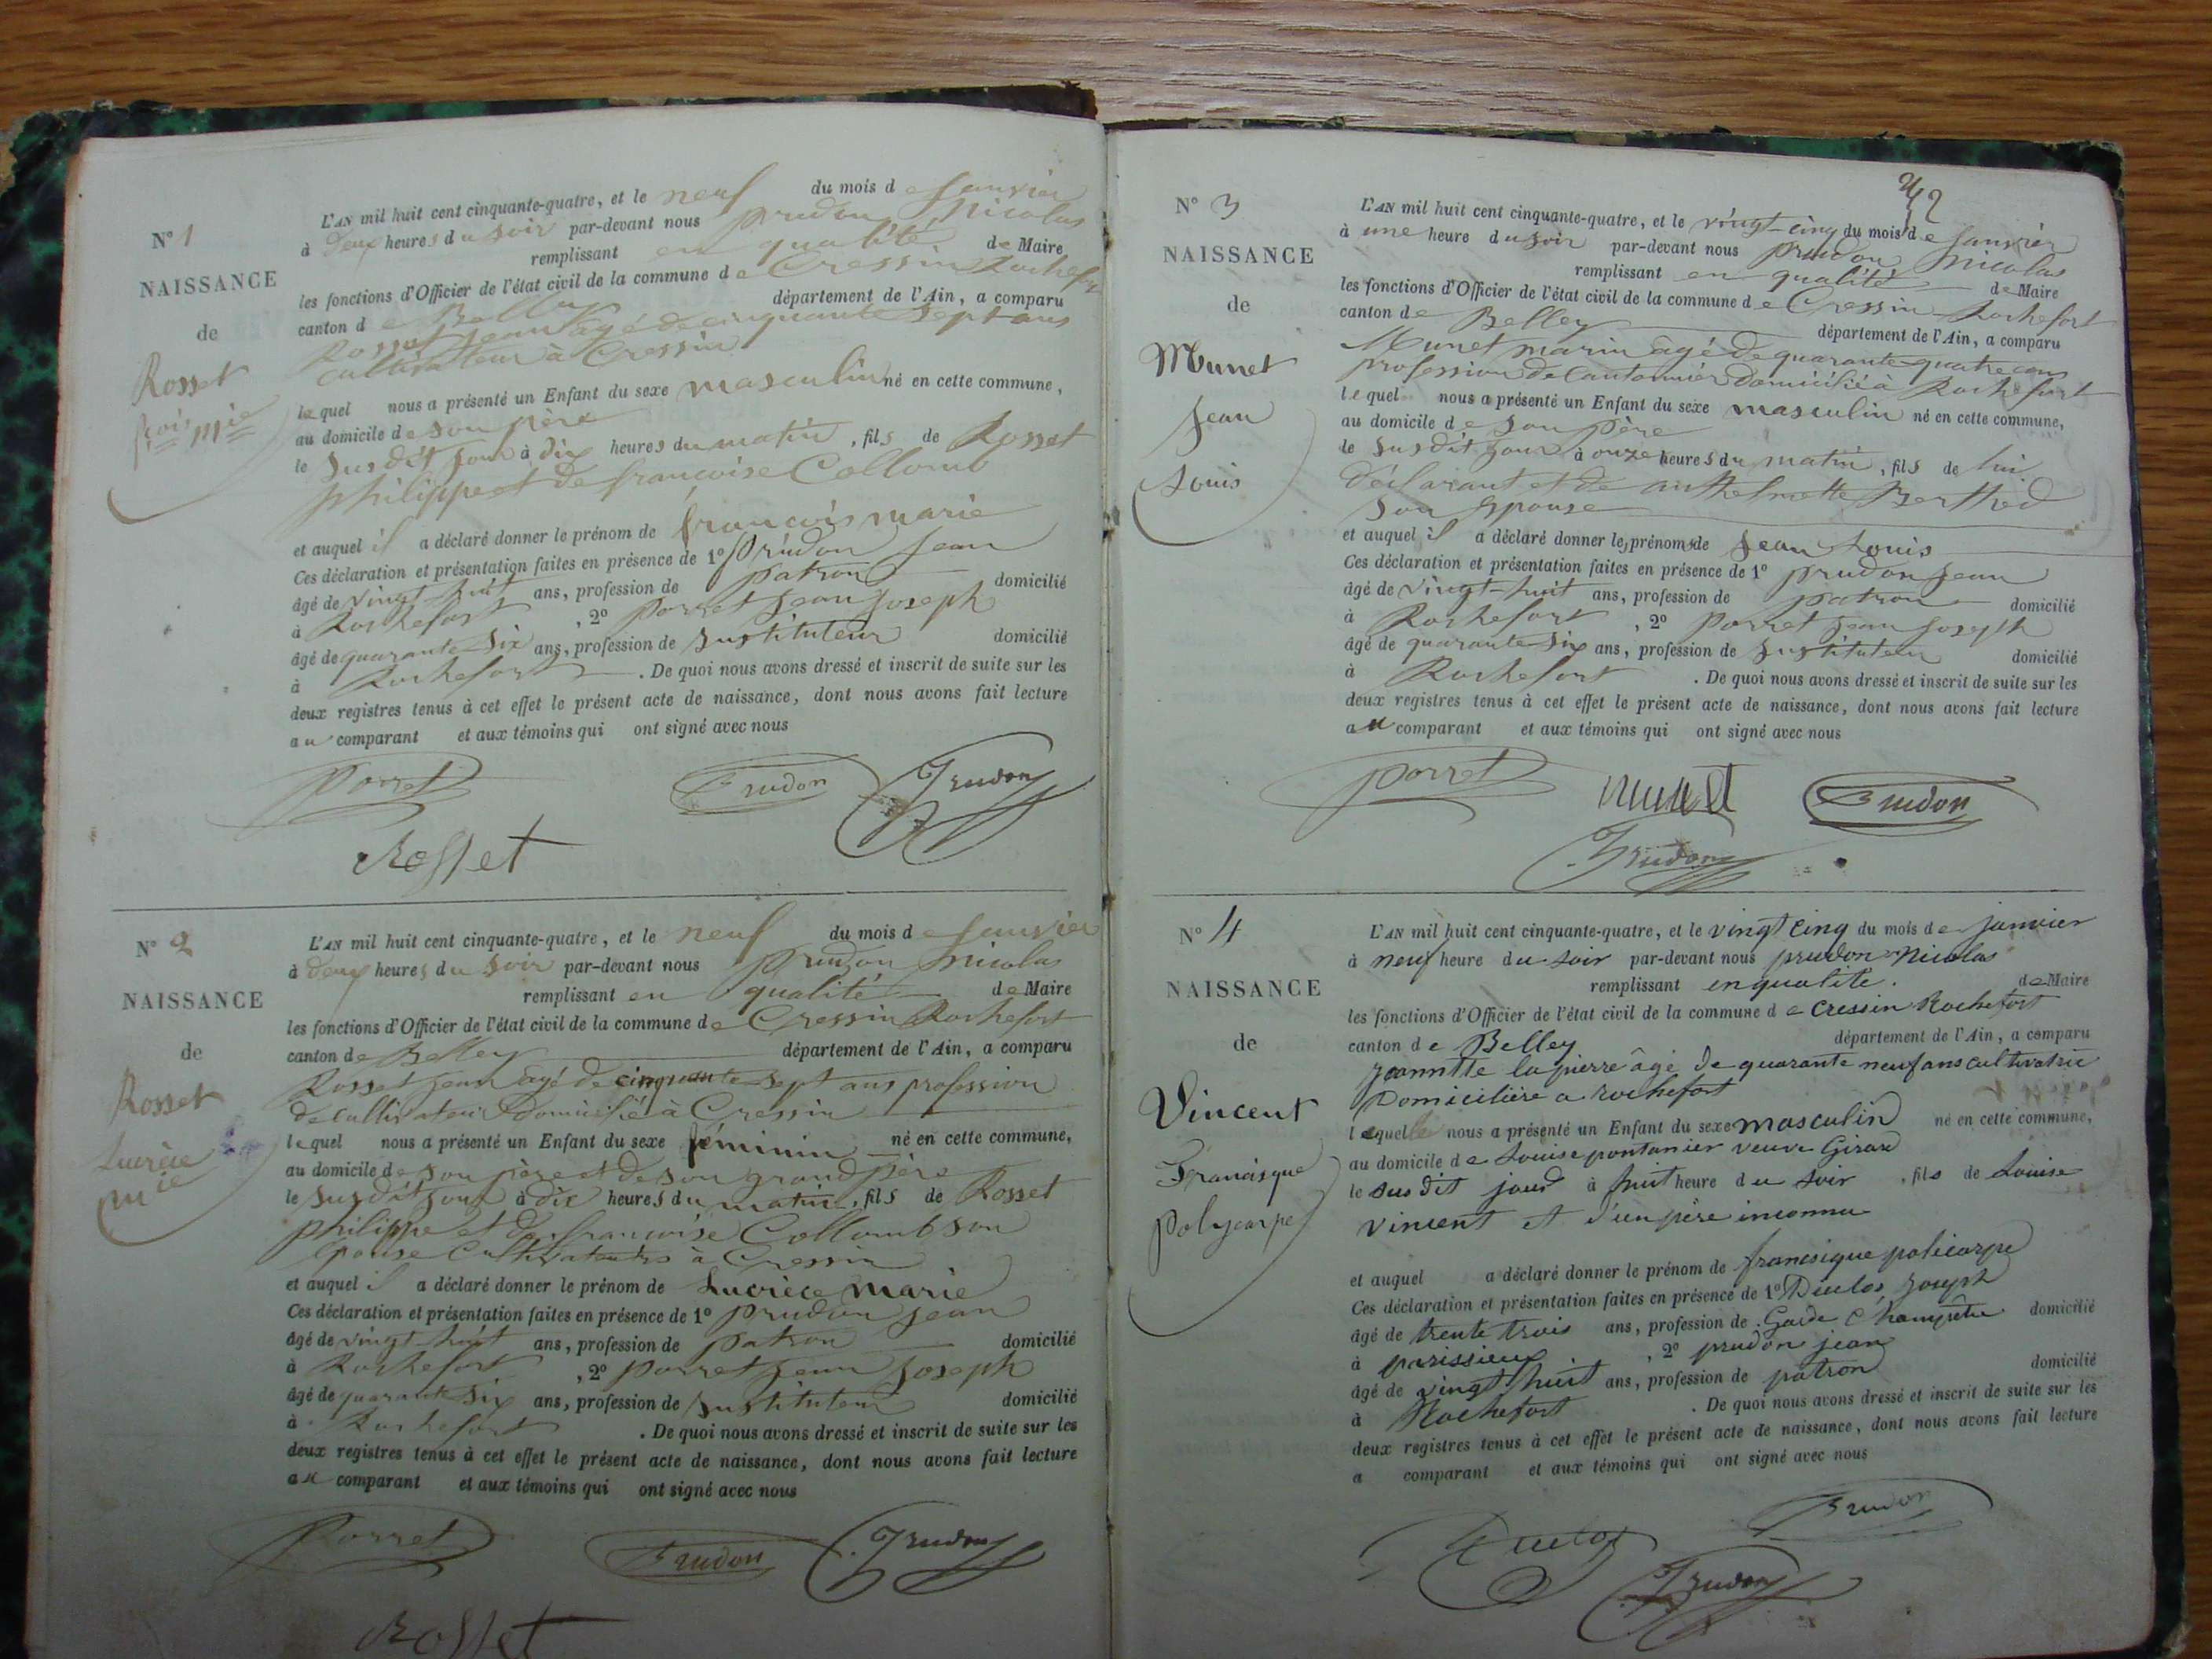 N° 1
NAISSANCE
de
Rosset
fçois mie
L'AN mil huit cent cinquante-quatre, et le neuf du mois de Janvier
à deux heures du soir par-devant nous prudon Nicolas
remplissant en qualité de Maire
les fonctions d'Officier de l'état civil de la commune de Cressin Rochefort
canton de Belley département de l'Ain, a comparu
Rosset Jean âgé de cinquante sept ans
cultivateur à Cressin
lequel nous a présenté un Enfant du sexe masculin né en cette commune,
au domicile de son père
le susdit jour à dix heures du matin, fils de Rosset
philippe et de francoise Collomb
et auquel il a déclaré donner le prénom de françois marie
Ces déclaration et présentation faites en présence de 1° Prudon Jean
âgé de vingt-huit ans, profession de patron domicilié
à Rochefort, 2° Porret Jean Joseph
âgé de quarante six ans, profession de Instituteur domicilié
à Rochefort. De quoi nous avons dressé et inscrit de suite sur les
deux registres tenus à cet effet le présent acte de naissance, dont nous avons fait lecture
au comparant et aux témoins qui ont signé avec nous
Porret Prudon Prudon
Rosset
N° 2
NAISSANCE
de
Rosset
Lucrèce
mie
L'AN mil huit cent cinquante-quatre, et le neuf du mois de Janvier
à deux heures du soir par-devant nous prudon Nicolas
remplissant en qualité de Maire
les fonctions d'Officier de l'état civil de la commune de Cressin Rochefort
canton de Belley département de l'Ain, a comparu
Rosset Jean âgé de cinquante-sept ans profession
de cultivateur domicilié à Cressin
lequel nous a présenté un Enfant du sexe féminin né en cette commune,
au domicile de son père et de son grand père
le susdit jour à dix heures du matin, fils de Rosset
philippe et de francoise Collomb son
épouse Cultivateurs à Cressin
et auquel il a déclaré donner le prénom de Lucrèce marie
Ces déclaration et présentation faites en présence de 1° prudon Jean
âgé de vingt-huit ans, profession de patron domicilié
à Rochefort, 2° porret Jean Joseph
âgé de quarante six ans, profession de Instituteur domicilié
à Rochefort. De quoi nous avons dressé et inscrit de suite sur les
deux registres tenus à cet effet le présent acte de naissance, dont nous avons fait lecture
au comparant et aux témoins qui ont signé avec nous
Porret Prudon Prudon
Rosset
N° 3
NAISSANCE
de
Munet
Jean
Louis
L'AN mil huit cent cinquante-quatre, et le vingt-cinq du mois de Janvier
à une heure du soir par-devant nous prudon Nicolas
remplissant en qualité de Maire
les fonctions d'Officier de l'état civil de la commune de Cressin Rochefort
canton de Belley département de l'Ain, a comparu
Munet marin âgé de quarante-quatre ans
profession de cantonnier domicilié à Rochefort
lequel nous a présenté un Enfant du sexe masculin né en cette commune,
au domicile de son père
le susdit jour à onze heures du matin, fils de lui
déclarant et de anthelmette Berthed
son épouse
et auquel il a déclaré donner les prénoms de Jean Louis
Ces déclaration et présentation faites en présence de 1° prudon Jean
âgé de vingt-huit ans, profession de patron domicilié
à Rochefort, 2° porret Jean Joseph
âgé de quarante six ans, profession de Instituteur domicilié
à Rochefort. De quoi nous avons dressé et inscrit de suite sur les
deux registres tenus à cet effet le présent acte de naissance, dont nous avons fait lecture
au comparant et aux témoins qui ont signé avec nous
porret munet Prudon
Prudon
N° 4
NAISSANCE
de
Vincent
Francisque
polycarpe
L'AN mil huit cent cinquante-quatre, et le vingt cinq du mois de janvier
à neuf heure du soir par-devant nous prudon Nicolas
remplissant en qualité. de Maire
les fonctions d'Officier de l'état civil de la commune de Cressin Rochefort
canton de Belley département de l'Ain, a comparu
jeannette lapierre âgé de quarante neuf ans cultivatrice
Domicilière a rochefort
lequelle nous a présenté un Enfant du sexe masculin né en cette commune,
au domicile de Louise pontanier veuve Girard
le susdit jour à huit heure du soir, fils de Louise
vincent et d'un père inconnu
et auquel a déclaré donner le prénom de francisque policarpe
Ces déclaration et présentation faites en présence de 1° Duclos Joseph
âgé de trente trois ans, profession de Garde Champêtre domicilié
à parissieux, 2° prudon jean
âgé de vingt huit ans, profession de patron domicilié
à Rochefort. De quoi nous avons dressé et inscrit de suite sur les
deux registres tenus à cet effet le présent acte de naissance, dont nous avons fait lecture
a comparant et aux témoins qui ont signé avec nous
Duclos Prudon
Prudon